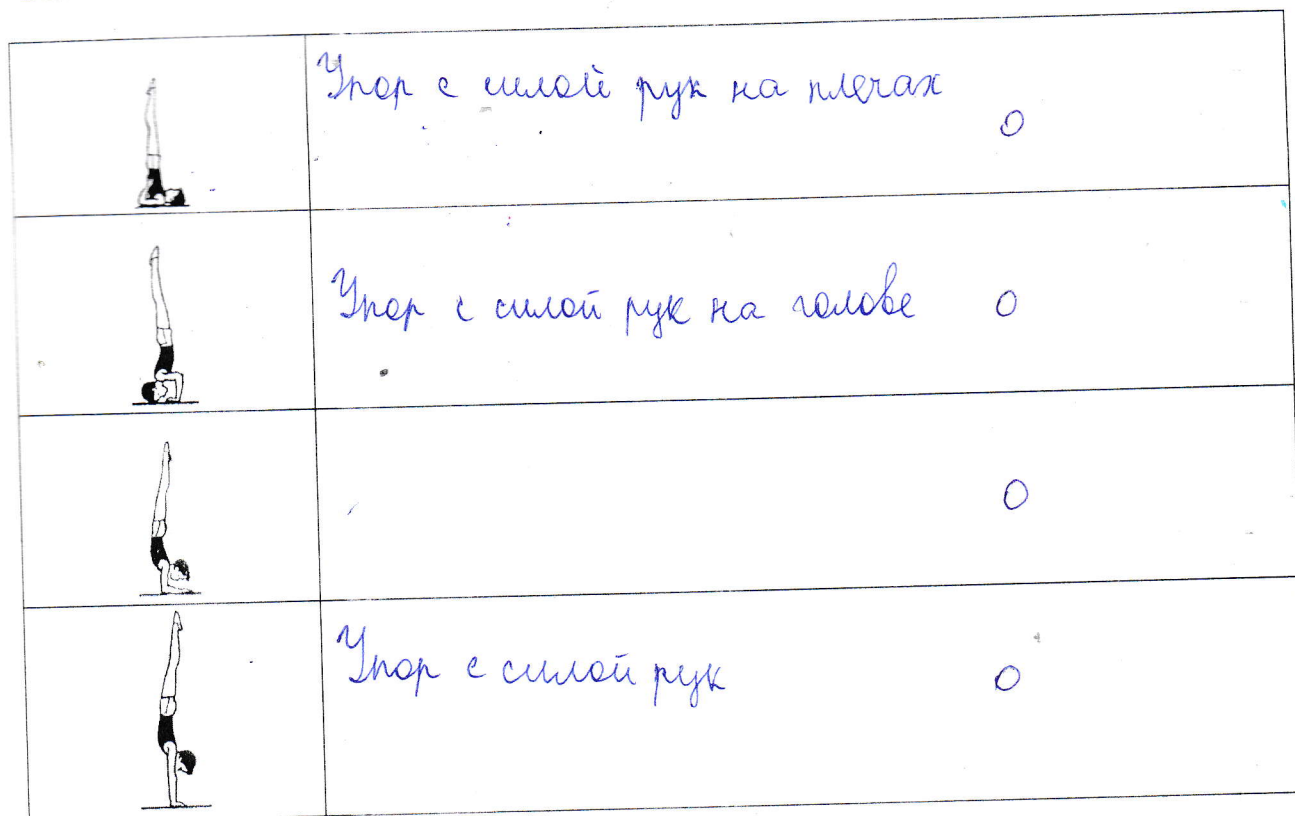 Упор с силой рук на плечах
0
Упор с силой рук на голове 0
0
Упор с силой рук 0